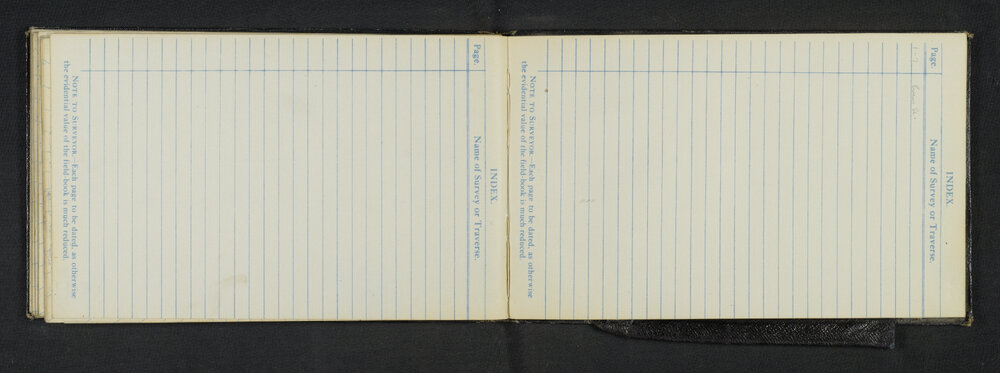 INDEX.
Page. Name of Survey or Traverse.
NOTE TO SURVEYOR.—Each page to be dated, as otherwise
the evidential value of the field-book is much reduced.
INDEX.
Page. Name of Survey or Traverse.
1-7
NOTE TO SURVEYOR.—Each page to be dated, as otherwise
the evidential value of the field-book is much reduced.